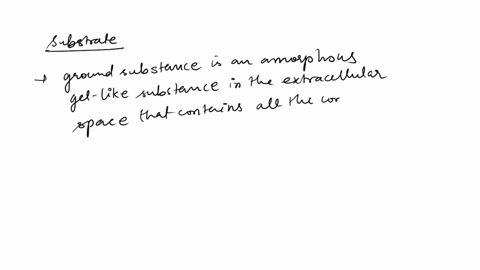 Substrate
→ ground substance is an amorphous
gel-like substance in the extracellular
space that contains all the cor